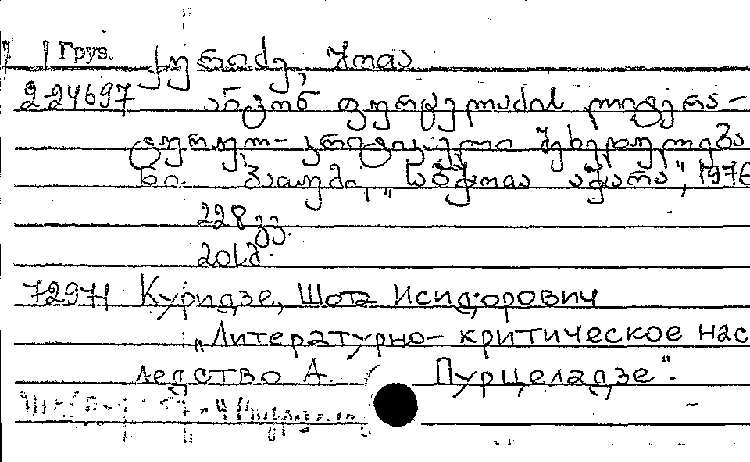 Груз. ქურიძე, შოთა
2-24697 ანტონ ფურცელაძის ლიტერა-
ტურულ-კრიტიკული შეხედულება
ნი. ბათუმი, „საბჭოთა აჭარა", 1976
228 გვ.
201
72971 Куридзе, Шота Исидорович
„Литературно-критическое нас
ледство А. Пурцеладзе".